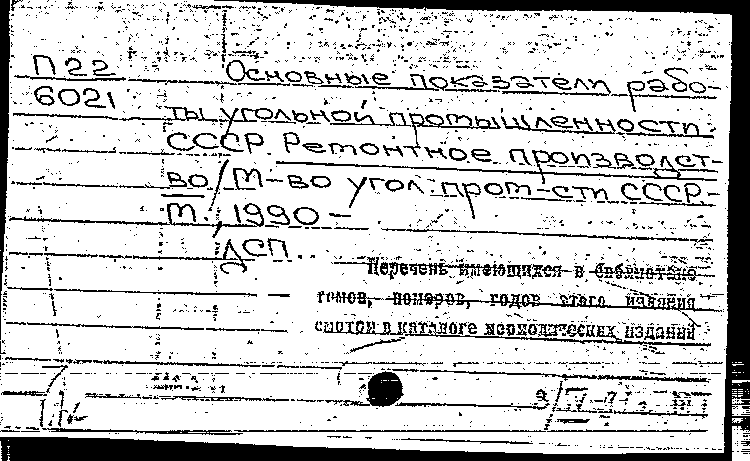 П22 Основные показатели рабо-
6021 ты угольной промышленности
СССР. Ремонтное производст-
во / М-во угол. пром-сти СССР.-
М., 1990 -
ДСП..
Перечень имеющихся в библиотеке
томов, номеров, годов этого издания
смотри в каталоге периодических изданий